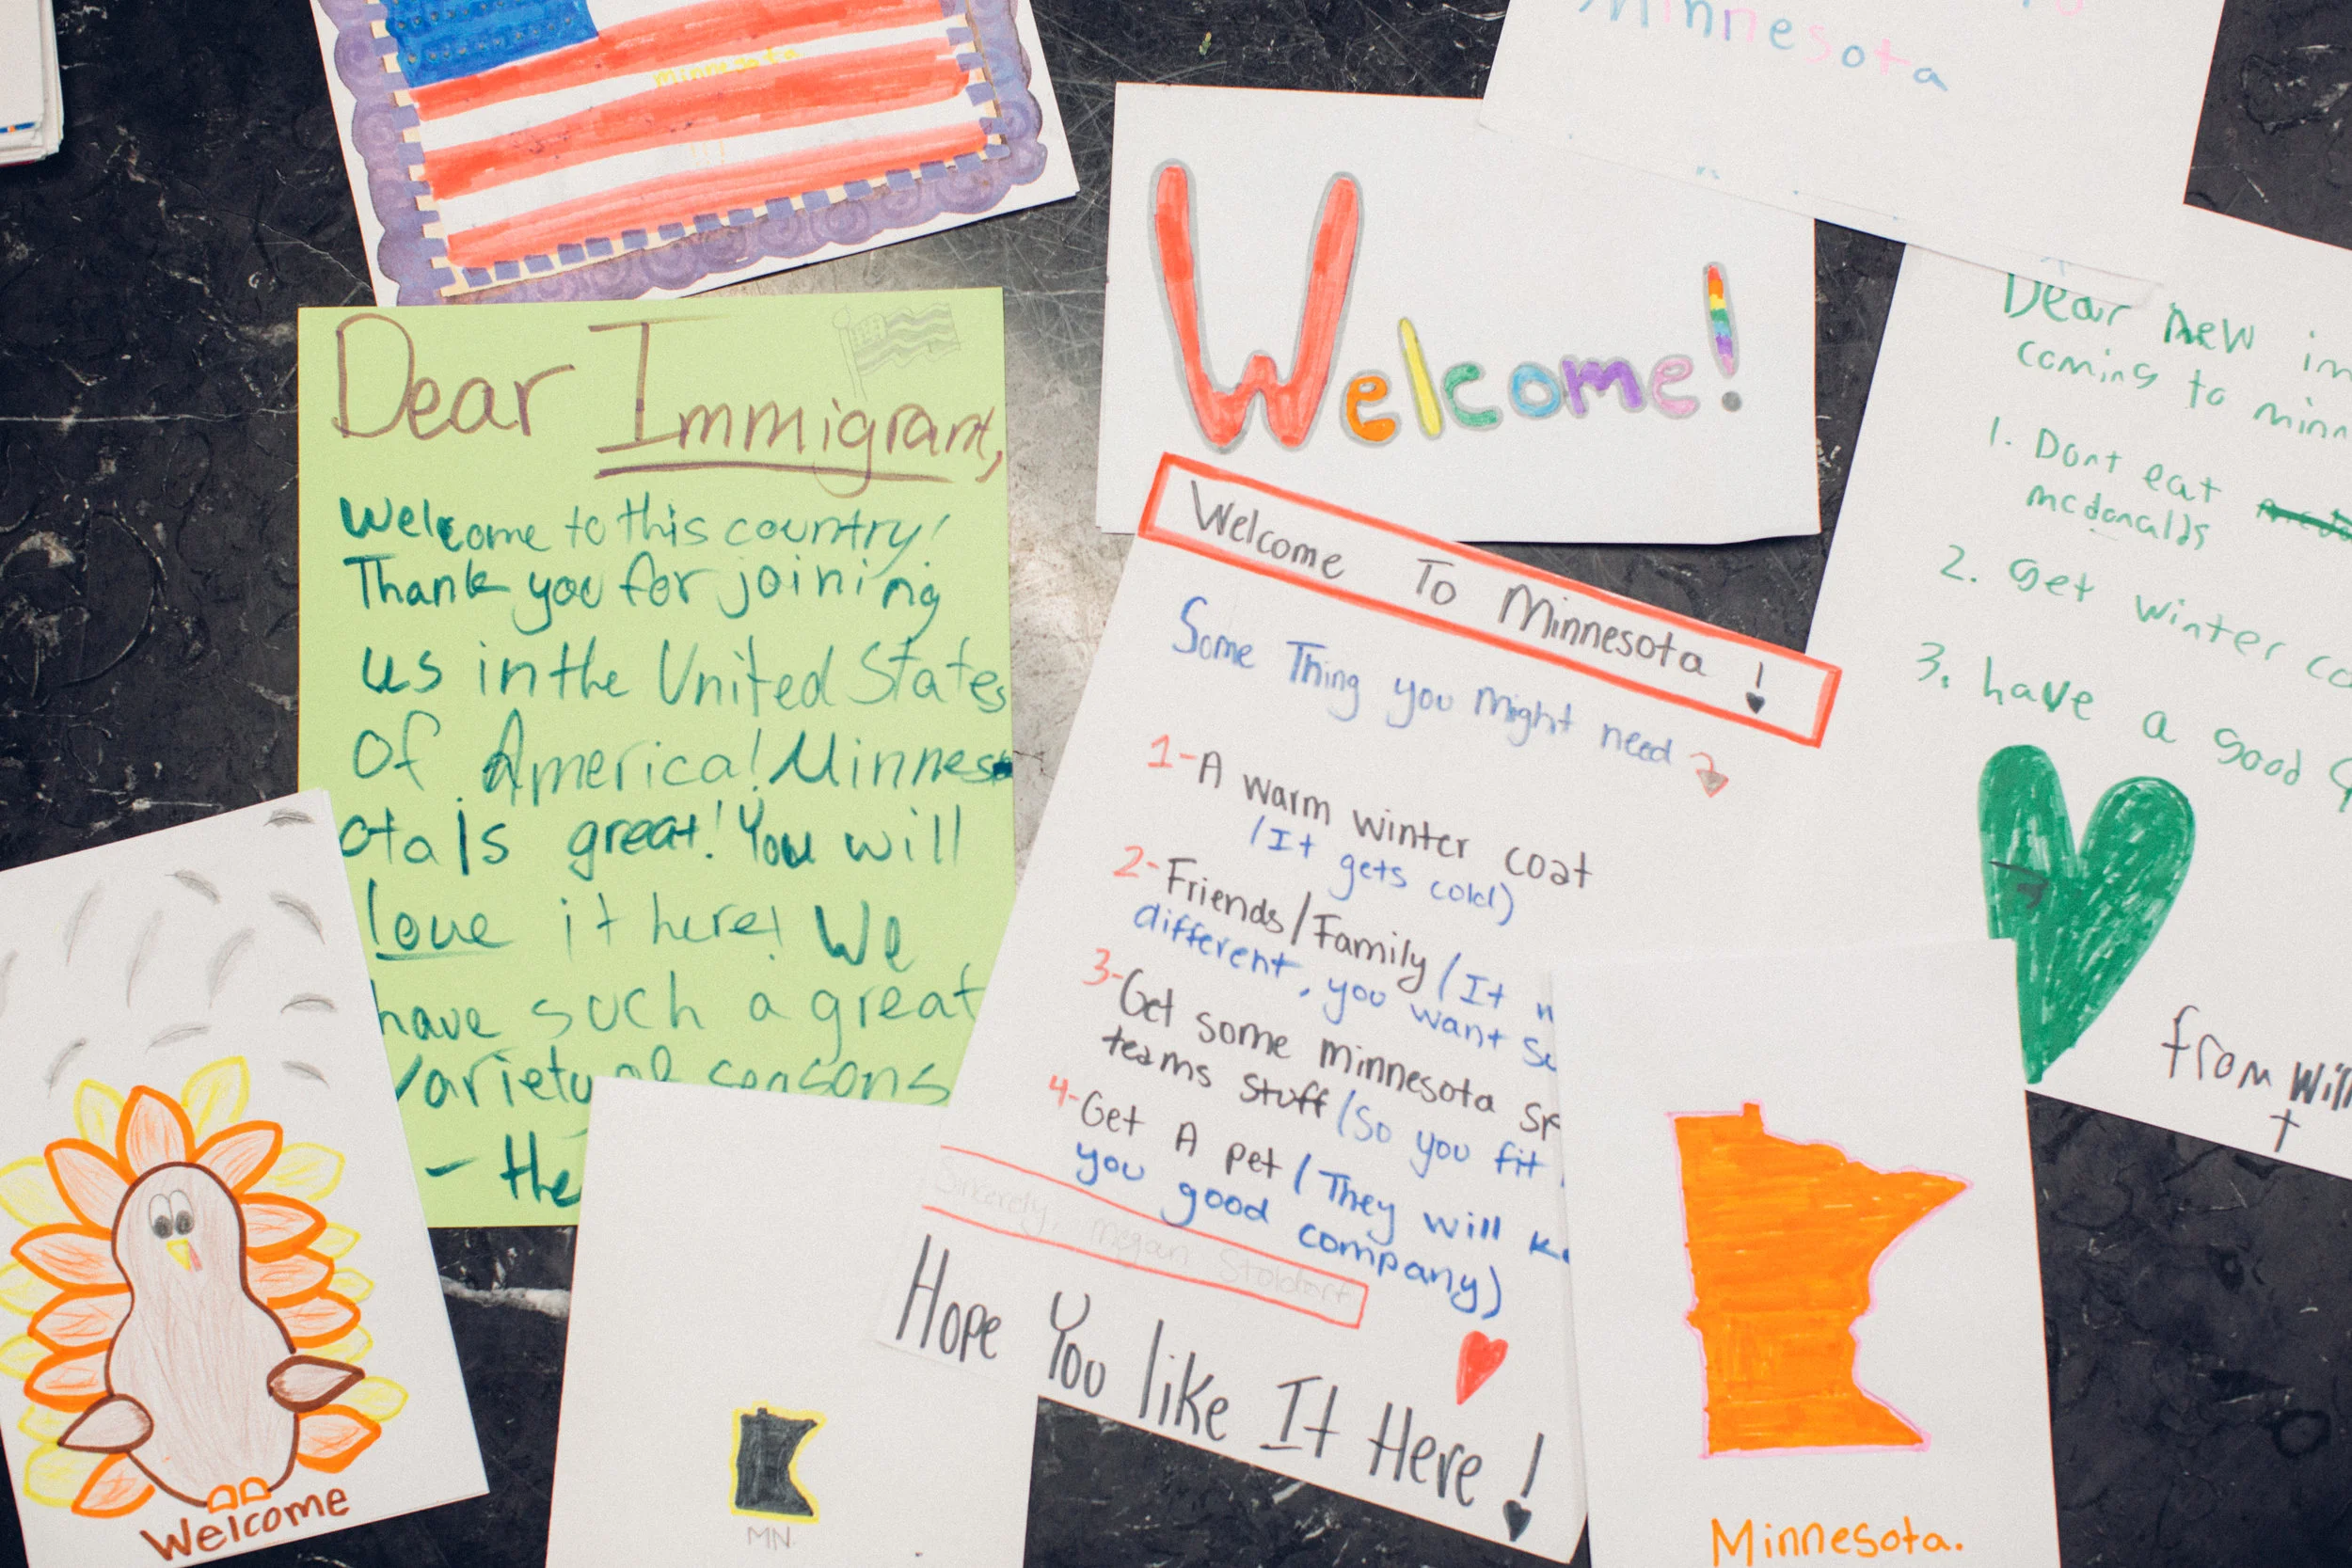 minnesota
!!!
Minnesota
Dear Immigrant,
Welcome to this country!
Thank you for joining
us in the United States
of America! Minnes
ota Is great! You will
love it here! We
have such a great
variety of seasons
- the
Welcome!
Welcome To Minnesota !
Some Thing you might need
1-A warm winter coat
(It gets cold)
2-Friends/Family (It
different, you want
3-Get some minnesota
teams stuff (So you fit
4-Get A pet (They will
you good company)
Sincerely, megan Stoldorf
Hope You like It Here !
Dear new
coming to minn
1. Dont eat
mcdonalds
2. Get winter
3. have a good
from Will
Welcome
MN.
Minnesota.